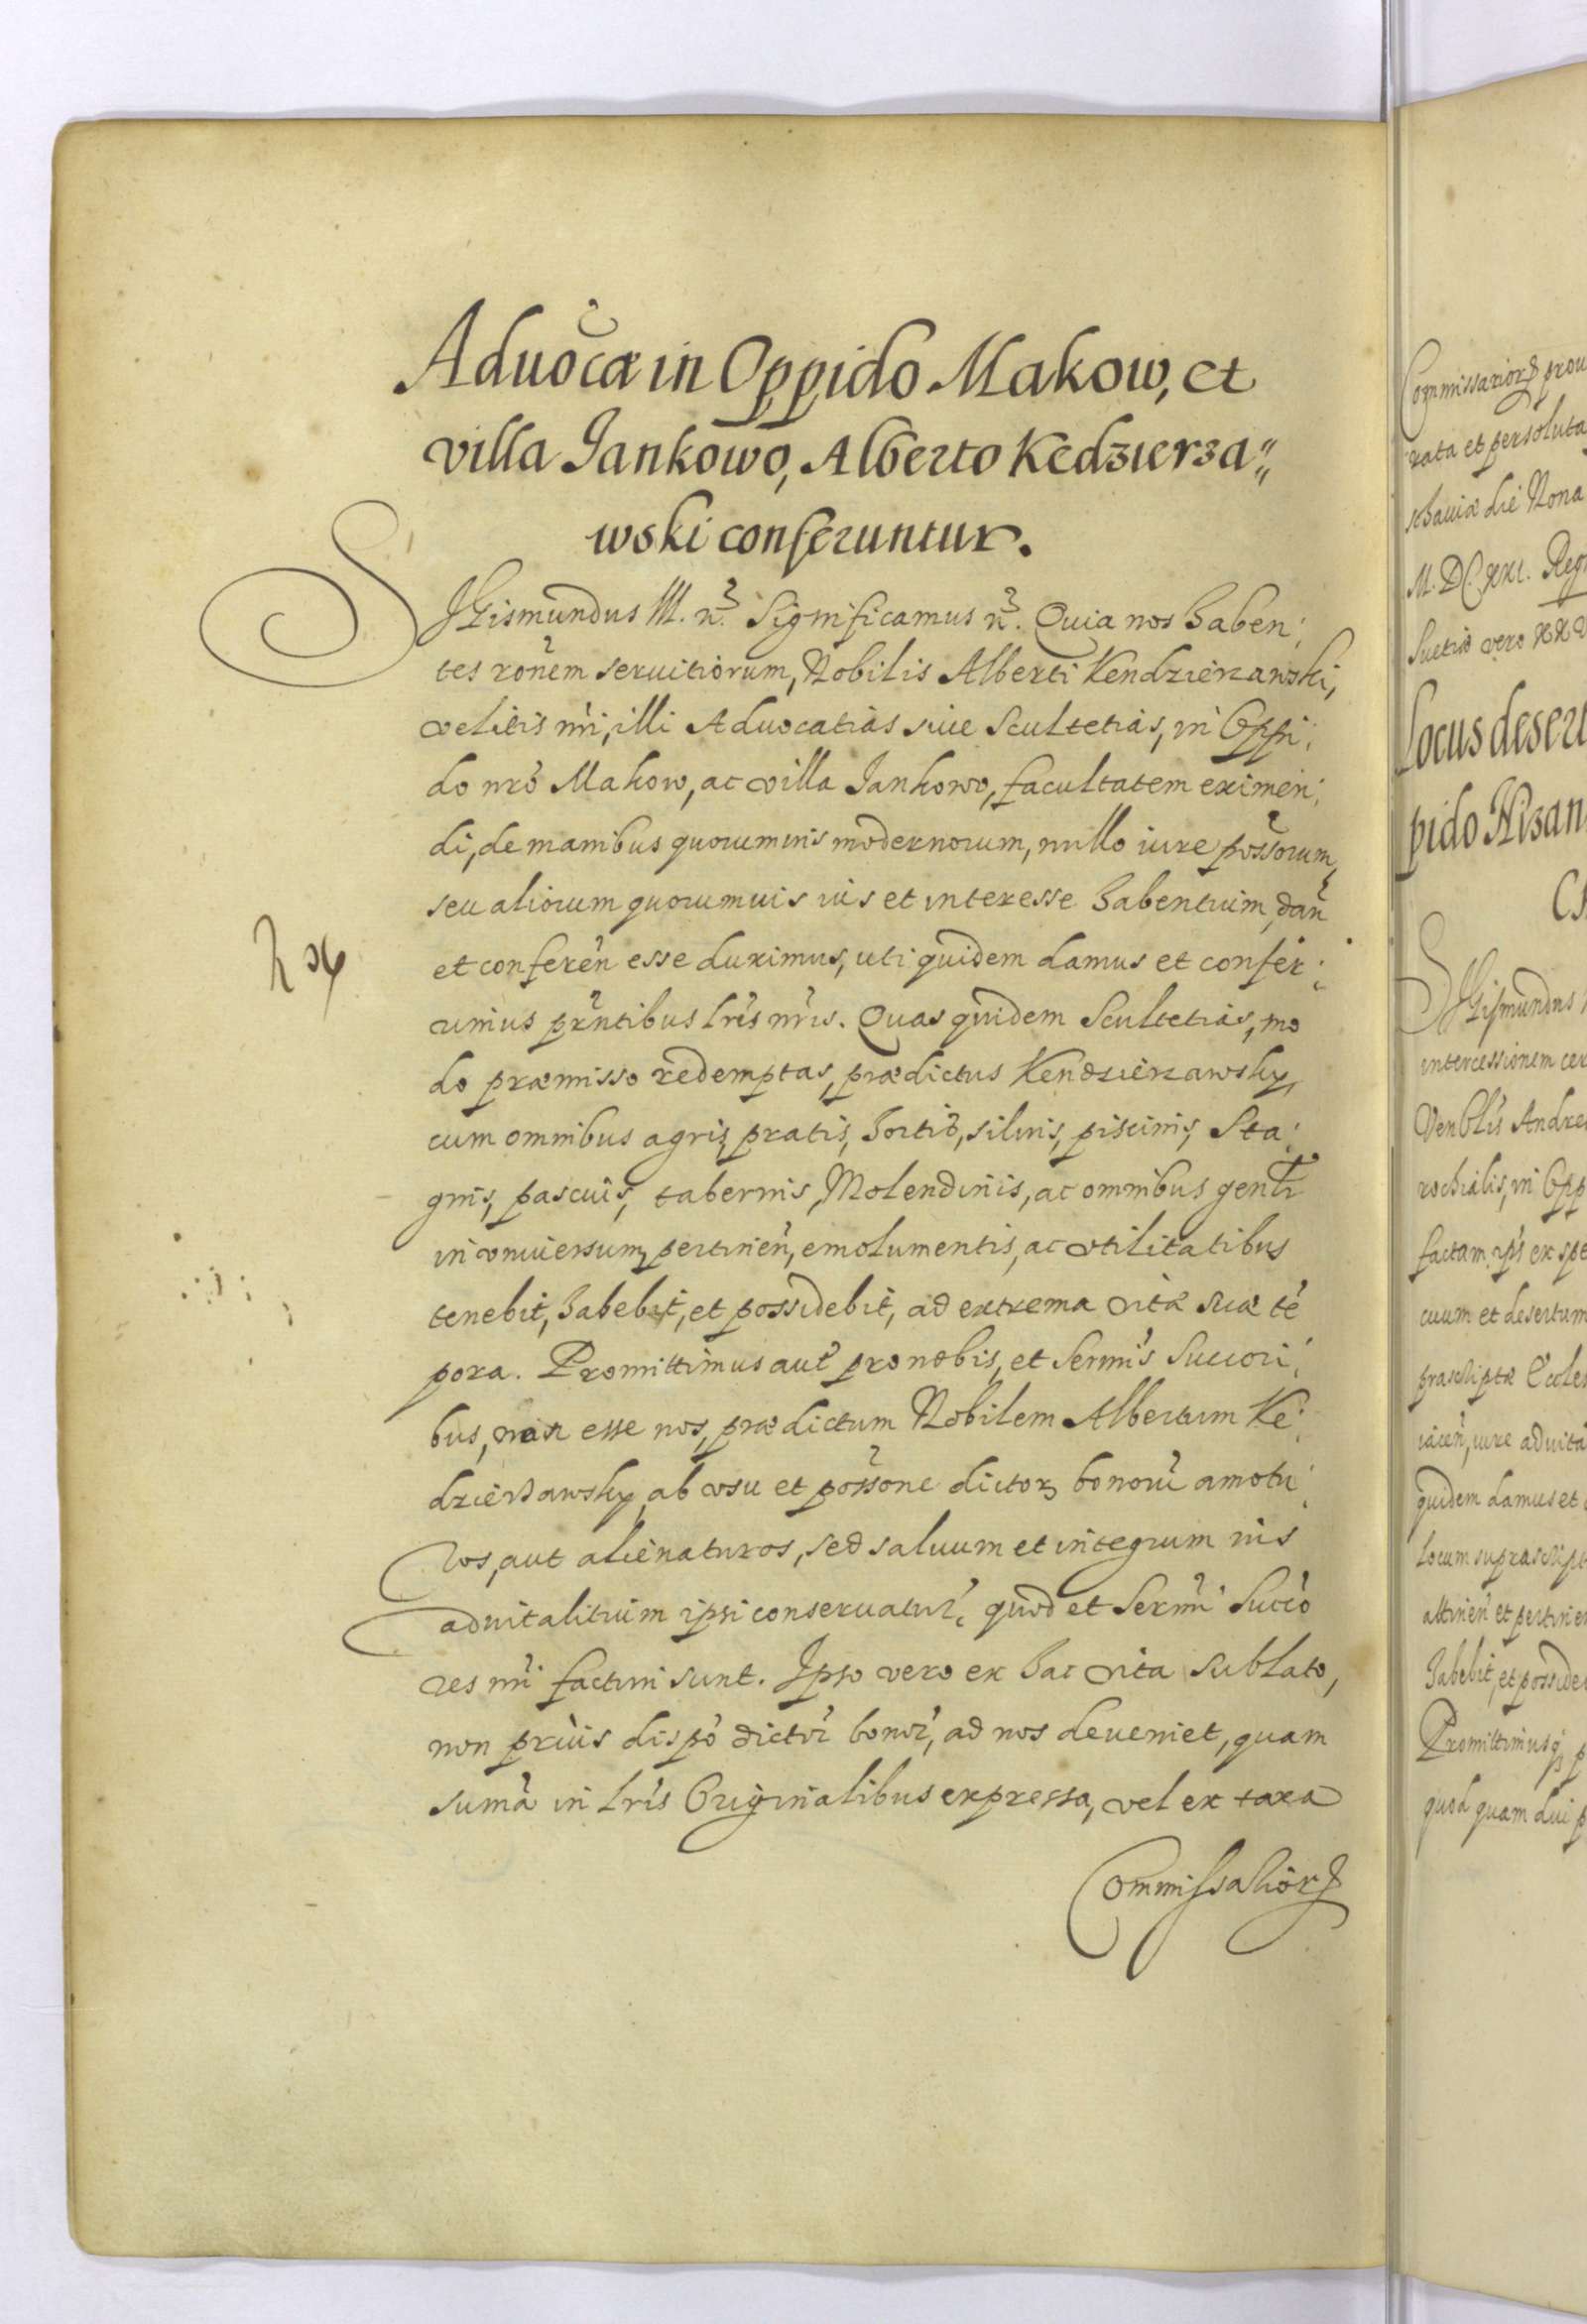 Aduocæ in Oppido Makow, et
villa Jankowo, Alberto Kedzierza„
wski conferuntur.
SIGismundus III. n. Significamus n. Quia nos haben:
tes ronem seruitiorum, Nobilis Alberti Kendzierzawski,
velitis nri, illi Aduocatias siue Scultetias, in Oppi:
do nro Makow, ac villa Jankowo, facultatem eximen:
di, de manibus quorumuis modernorum, nullo iure possorum,
seu aliorum quorumuis ius et interesse habentium, dan
et conferen esse duximus, uti quidem damus et confer:
imus prntibus lris nris. Quas quidem Scultetias, mo
do præmisso redemptas, prædictus Kendzierzawsky,
cum omnibus agris, pratis, hortis, siluis, piscinis, Sta:
gnis, pascuis, tabernis, Molendinis, ac omnibus genlr
in vniuersum pertinen, emolumentis, ac vtilitatibus
tenebit, habebit, et possidebit, ad extrema vitæ suæ te
pora. Promittimus aut pro nobis, et Sermis Succori:
bus, non esse nos, prædictum Nobilem Albertum Ke:
dzierzawsky, ab vsu et possone dictor bonoru amotu:
ros, aut alienaturos, sed saluum et integrum ius
aduitalitium ipsi conseruatur, quod et Sermi Succo
res nri facturi sunt. Ipso vero ex hac vita sublato,
non prius dispo dictor bonor, ad nos deueniet, quam
suma in lris Originalibus expressa, vel ex taxa
Commissarior
Commissarior prou
rata et persoluta
schauiæ die Nona
M. DC. XXI. Reg
Suetiæ vero XXV
Locus desert
pido Nizan
SIGismundus
intercessionem cer
Venblis Andre
rochialis, in Opp
factam, ips ex spe
cuum et desertum
præscriptæ Eccles
iacen, iure aduita
quidem damus et
locum suprascript
attinen et pertinen
habebit, et posside
Promittimusq p
quod quam diu p